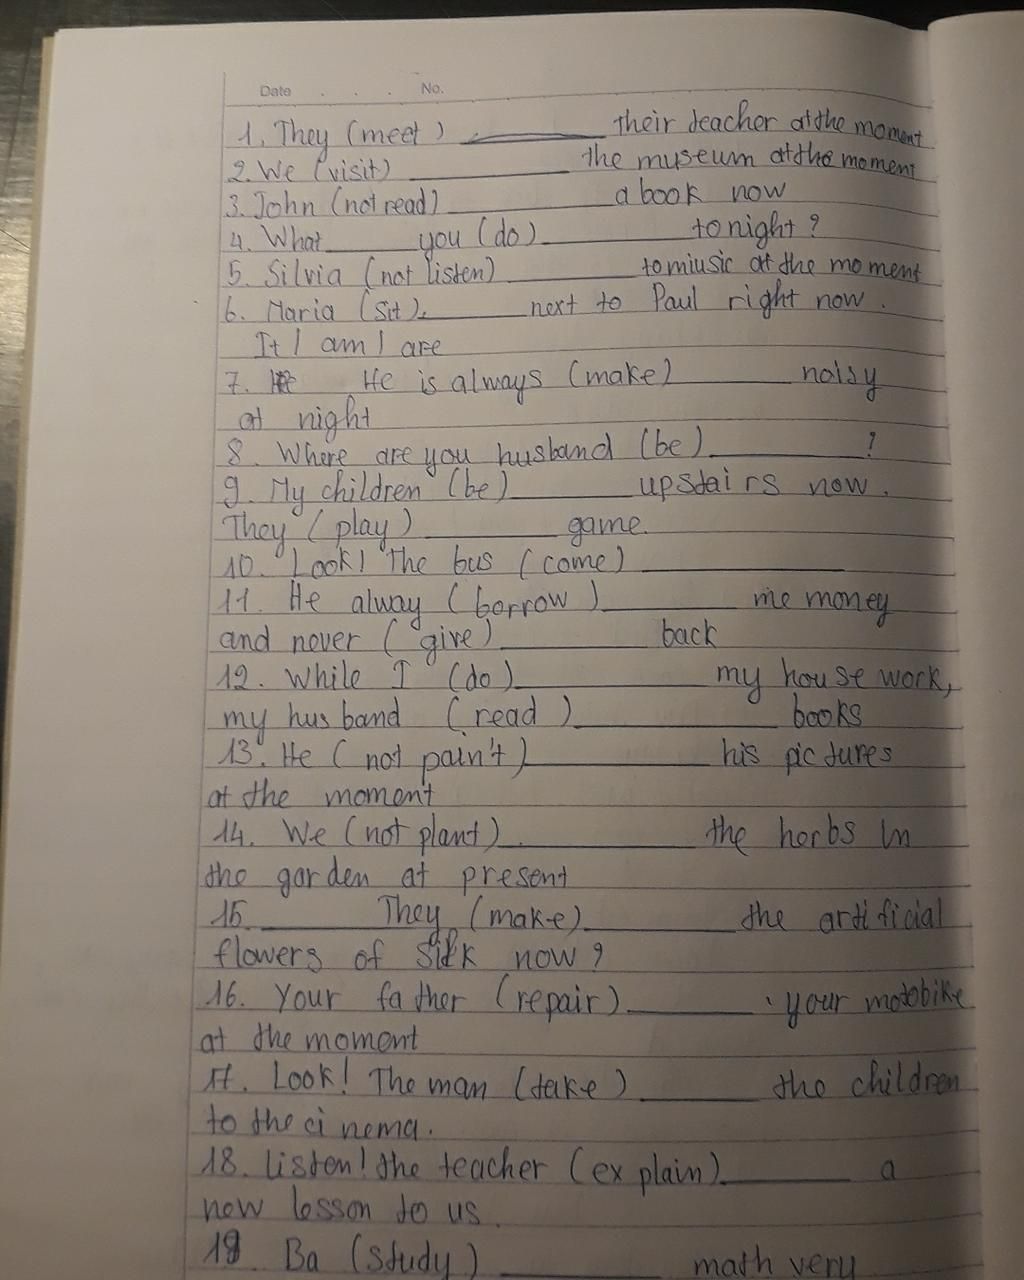 Date . . . No.
1. They (meet) ________ their teacher at the moment
2. We (visit) ________ the museum at the moment
3. John (not read) ________ a book now
4. What ____ you (do) ________ tonight ?
5. Silvia (not listen) ________ to miusic at the moment
6. Maria (sit). ________ next to Paul right now .
It / am / are
7. He is always (make) ________ noisy
at night
8. Where are you husband (be) ________ ?
9. My children (be) ________ upstairs now .
They (play) ________ game.
10. Look! The bus (come) ________
11. He alway (borrow) ________ me money
and never (give) ________ back
12. While I (do) ________ my house work,
my husband (read) ________ books
13. He (not pain't) ________ his pictures
at the moment
14. We (not plant) ________ the herbs in
the garden at present
15 ________ They (make) ________ the artificial
flowers of silk now ?
16. Your father (repair) ________ your motobike
at the moment
17. Look! The man (take) ________ the children
to the cinema.
18. listen! the teacher (explain) ________ a
new lesson to us.
19 Ba (study) ________ math very